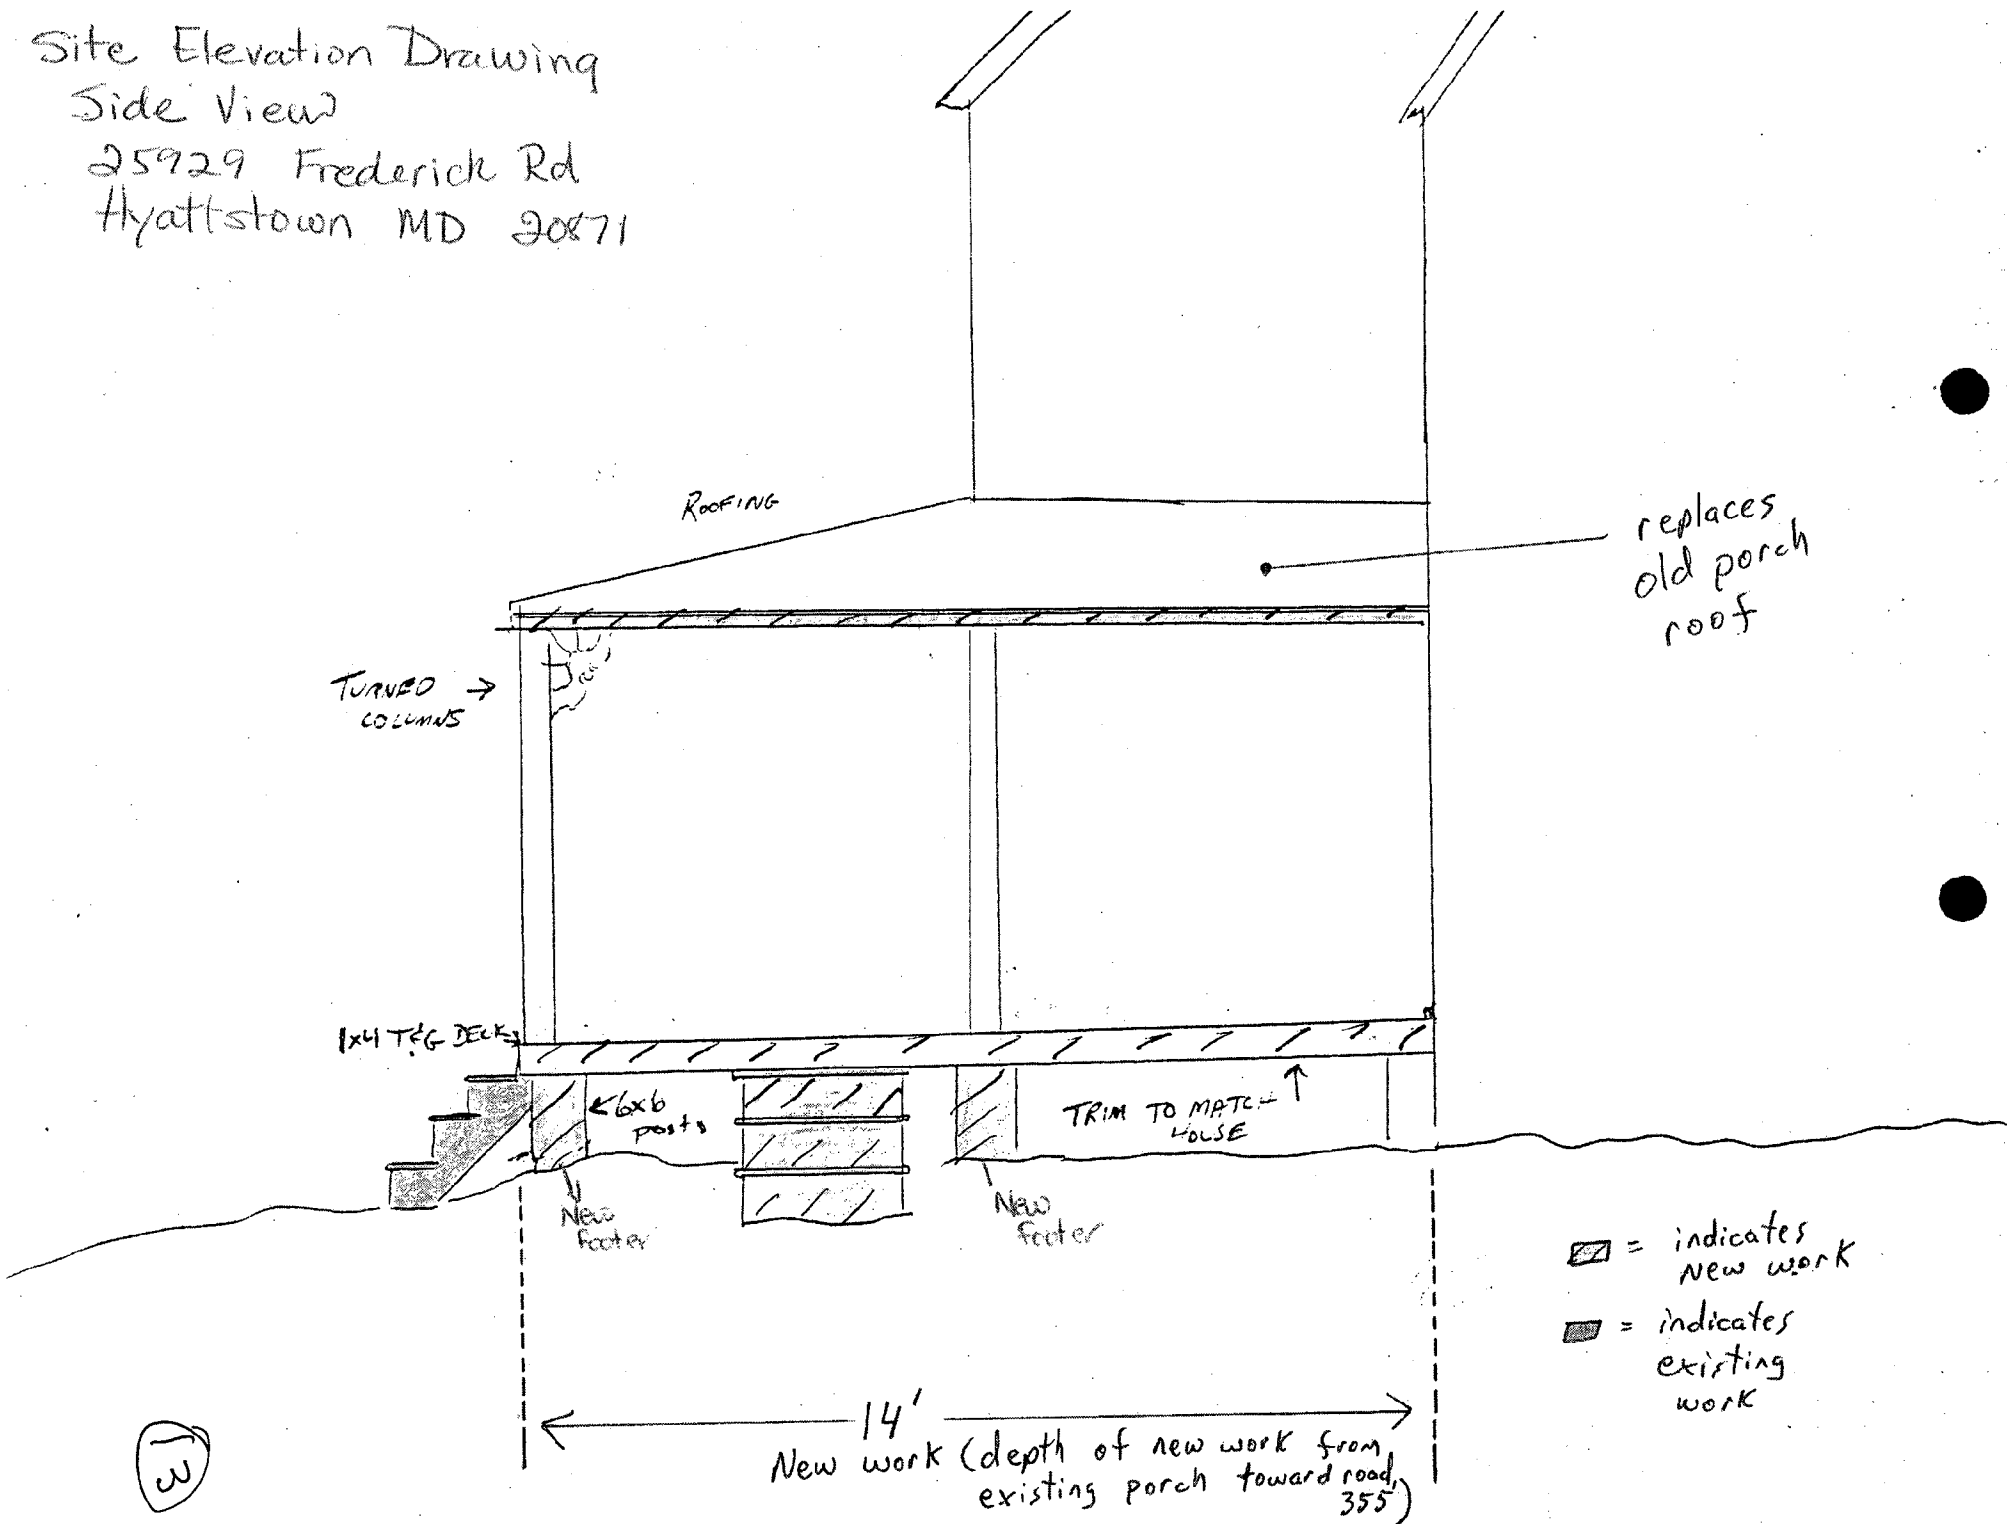 Site Elevation Drawing
Side View
25929 Frederick Rd
Hyattstown MD 20871
ROOFING
replaces
old porch
roof
TURNED
COLUMNS
1x4 T&G DECK
6x6
posts
TRIM TO MATCH
HOUSE
New
footer
New
footer
= indicates
New work
= indicates
existing
work
14'
New work (depth of new work from
existing porch toward road,
355)
13